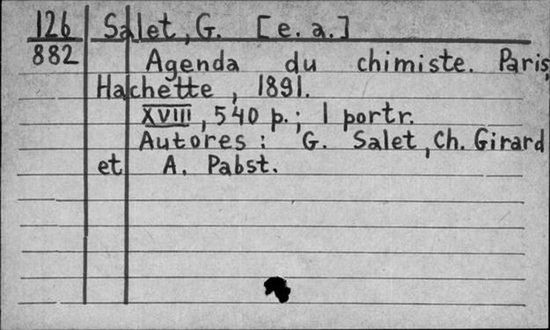 126 Salet, G. [e. a.]
882 Agenda du chimiste. Paris,
Hachette, 1891.
XVIII, 540 p.; 1 portr.
Autores: G. Salet, Ch. Girard
et A. Pabst.